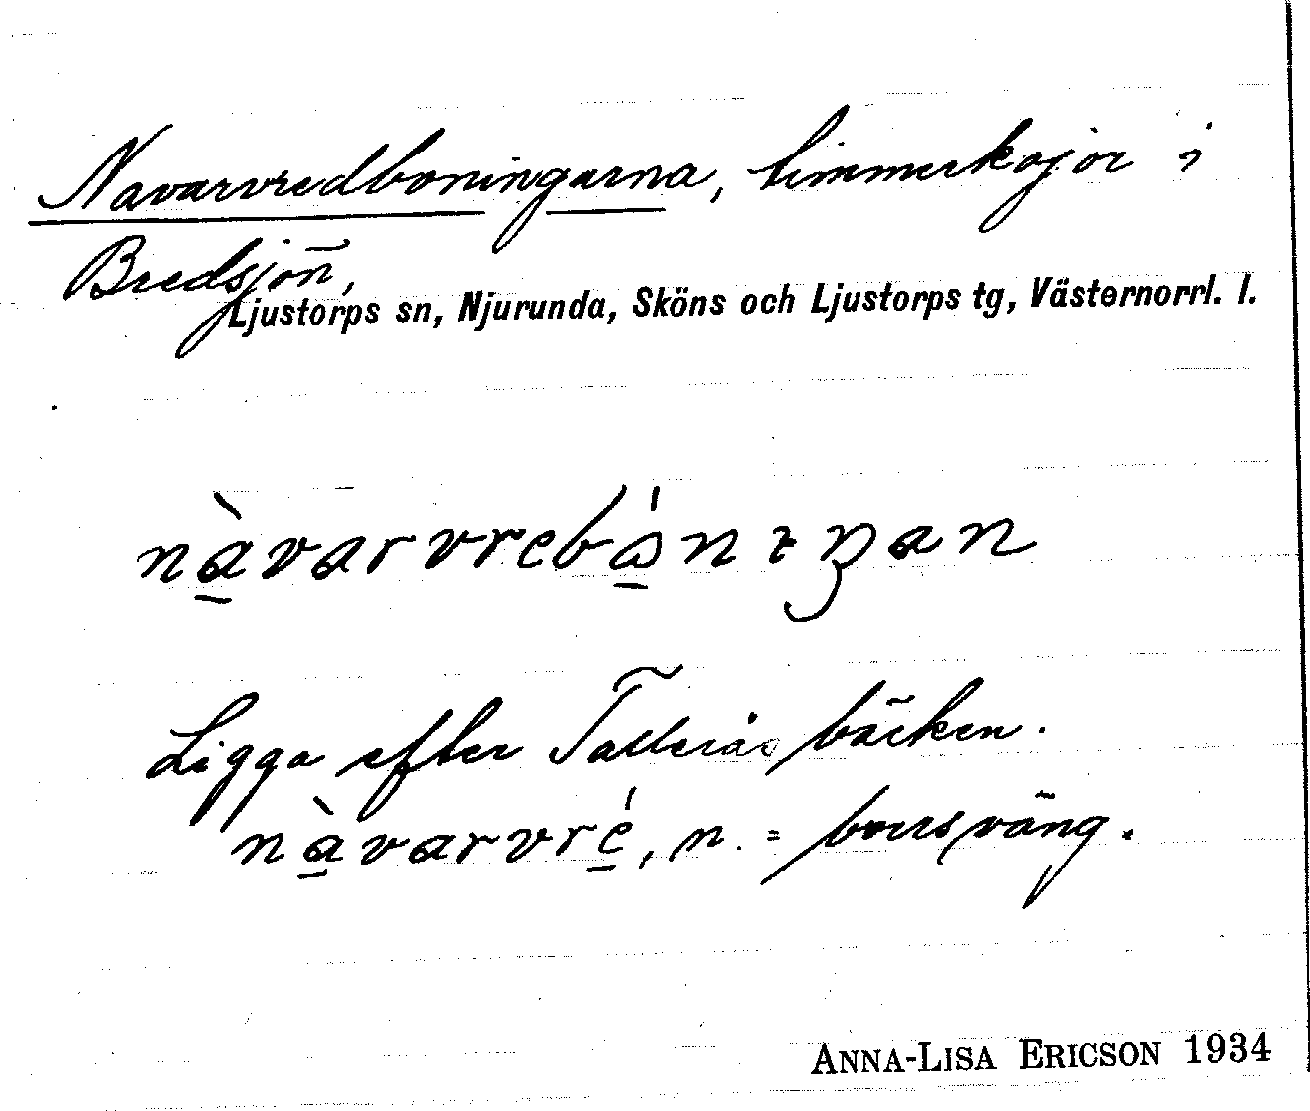 Navarvredboningarna, timmerkojor i
Bredsjön,
Ljustorps sn, Njurunda, Sköns och Ljustorps tg, Västernorrl. l.
nàvarvrebónıŋan
Ligga efter Tallerås bäcken.
nàvarvré, n. = borrsväng.
ANNA-LISA ERICSON 1934